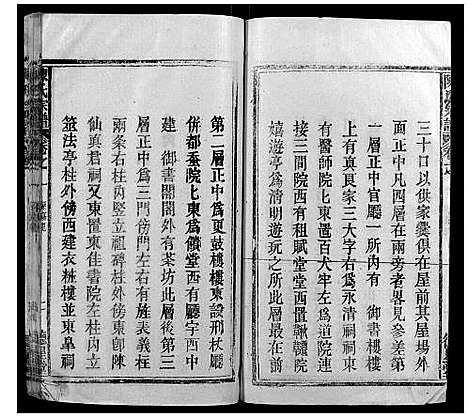 三十口以供家爨俱在屋前其屋場外
面正中凡四層在兩旁者畧見參差第
一層正中官廳一所內有 御書樓樓
上有真良家三大字右爲永清祠祠東
有醫師院東置百犬牢左爲道院連
接三間院西有租賦堂堂西置
嬉遊亭爲清明遊玩之所
第二層正中爲更鼓樓樓東設刑杖廳
併都蚕院東爲儐堂西有廳室西中
建 御書閣閣外有茶坊此層後第三
層正中爲三門傍門左右有旌表義柱
兩條右柱內竪立祖碑柱外傍東卽陳
仙真君祠又東置東佳書院左柱內立
筮法亭柱外傍西建衣粧樓並東皐祠